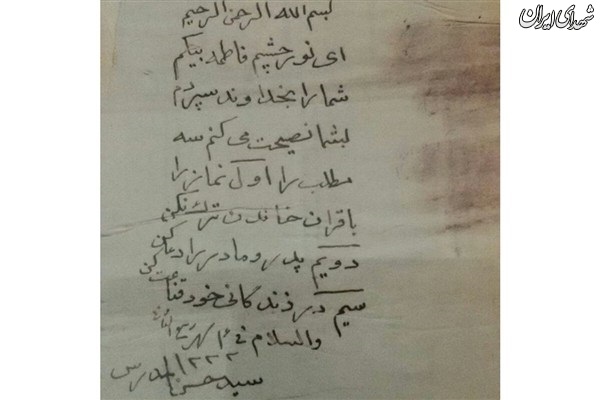 شهدای ایران
بسم الله الرحمن الرحیم
ای نور چشم فاطمه بیگم
شما را بخداوند سپردم
بشما نصیحت می کنم سه
مطلب را اول نماز را
با قران خواندن ترک نکن
دویم پدر و مادر را دعا کن
سیم در زندگانی خود قناعت کن
والسلام فی شهر ربیع
سید حسن المدرس